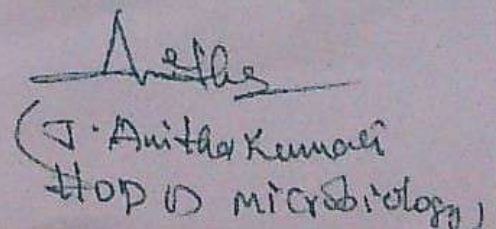 Anitha
(J. Anitha Kumari
HOD microbiology,